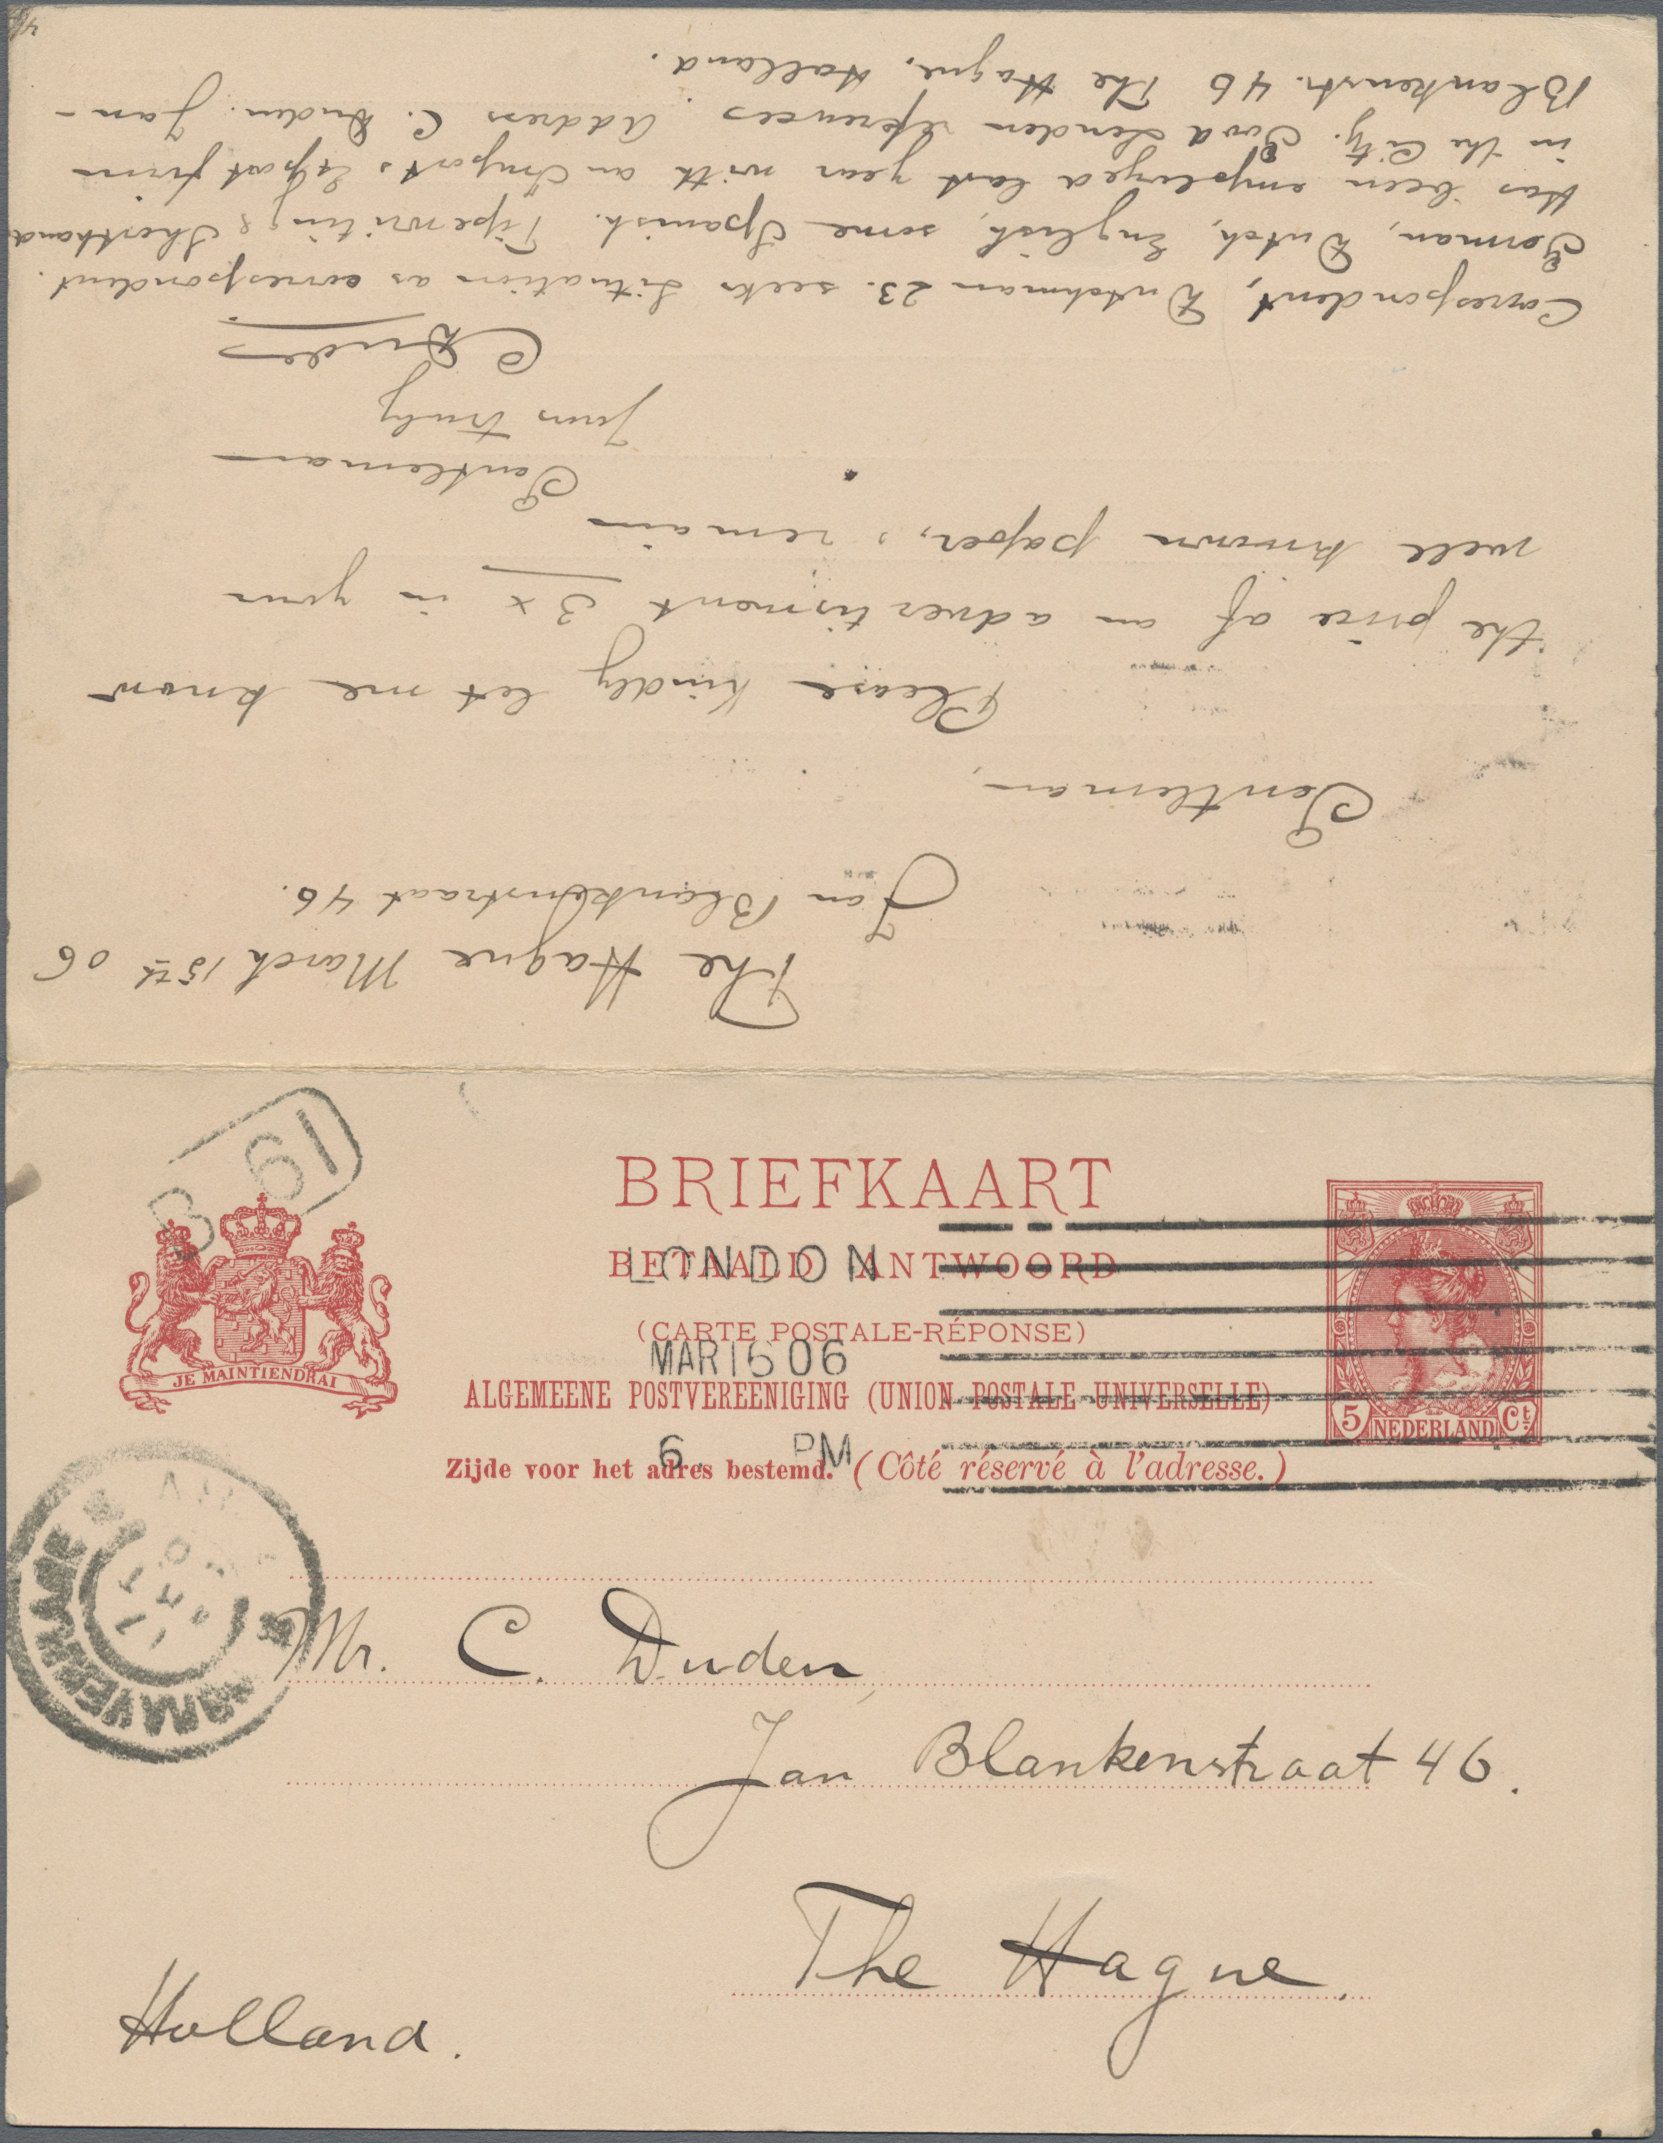 The Hague March 15th 06
Jan Blankenstraat 46.
Gentleman,
Please kindly let me know
the price of an advertisment 3x in your
well known paper, & remain
Gentleman
yours truly
C Duden
Correspondent, Dutchman 23. seeks situation as correspondent.
German, Dutch, English, some Spanish. Typewriting & Shorthand
Has been employed last year with an Import & Export firm
in the City. Good London references. Address C. Duden. Jan-
Blankenstr. 46 The Hague. Holland.
B 61
BRIEFKAART
BETAALD ANTWOORD
LONDON
(CARTE POSTALE-RÉPONSE)
MAR 16 06
ALGEMEENE POSTVEREENIGING (UNION POSTALE UNIVERSELLE)
6. PM
Zijde voor het adres bestemd. (Côté réservé à l'adresse.)
JE MAINTIENDRAI
5 NEDERLAND Ct
Mr. C. Duden
Jan Blankenstraat 46.
The Hague.
Holland.